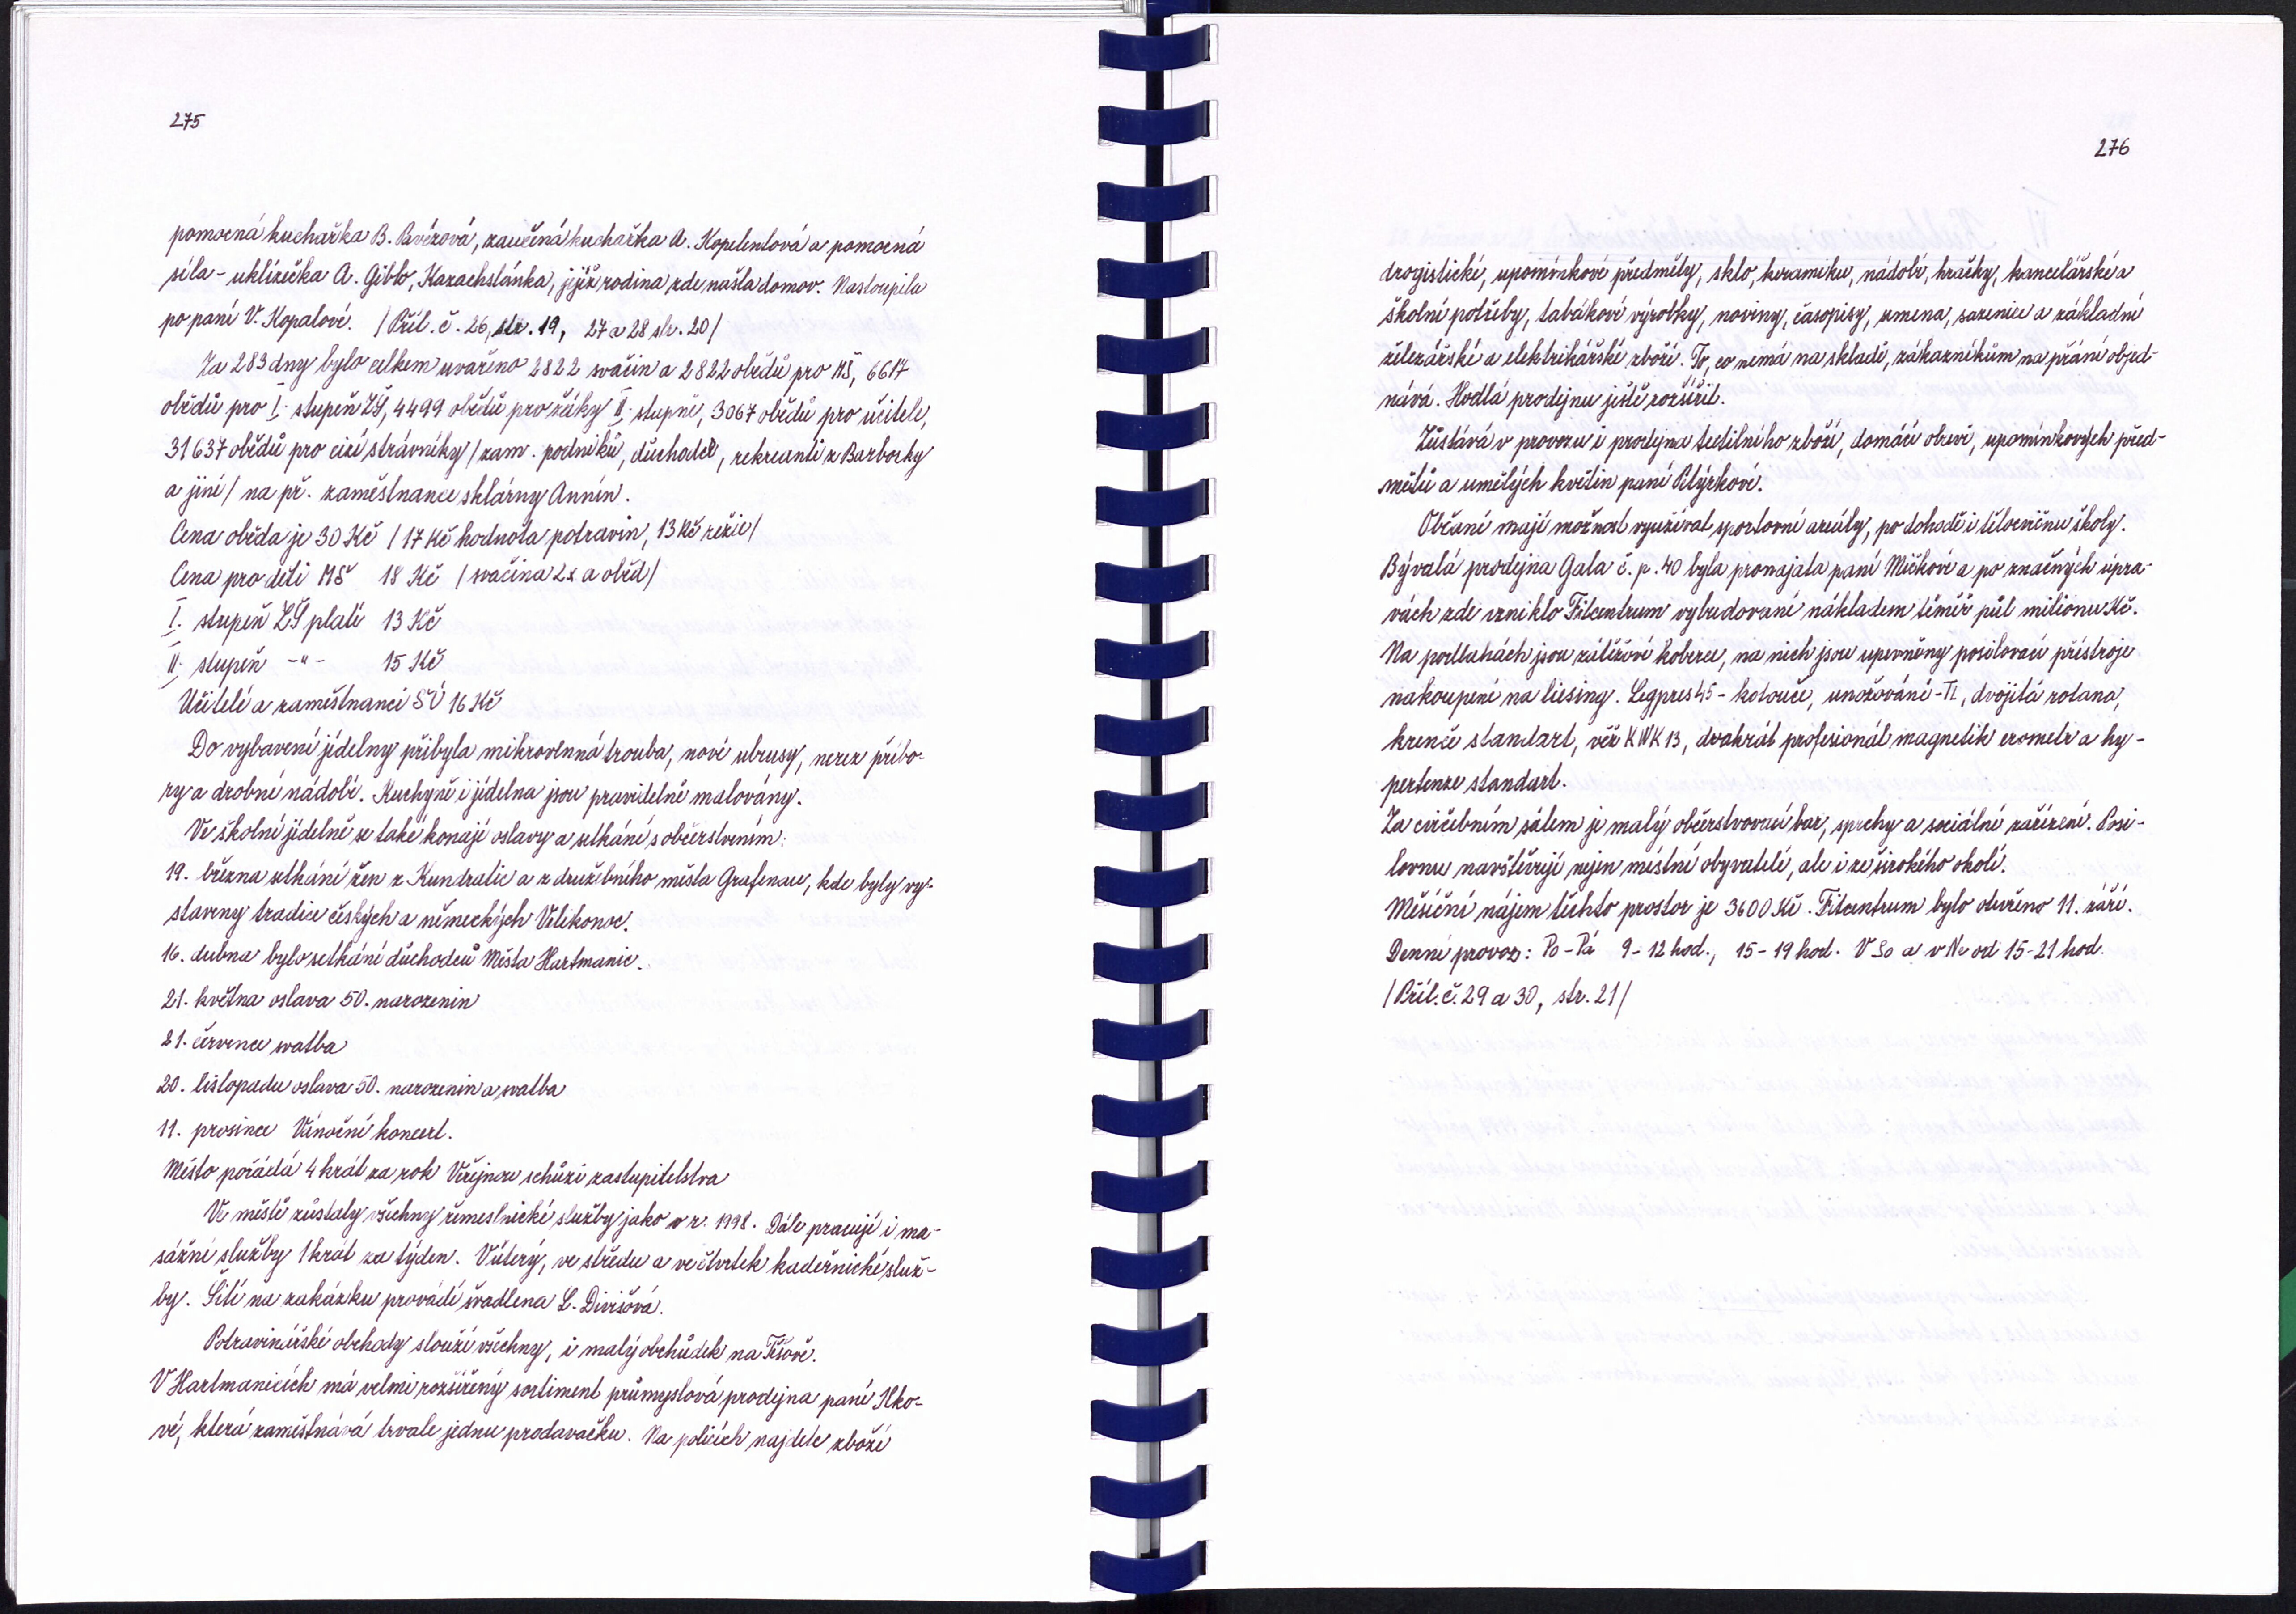 275
pomocná kuchařka B. Pavézová, zaučená kuchařka A. Kopelentová a pomocná
síla - uklizečka A. Giblo, Kazachstánka, jejíž rodina zde našla domov. Nastoupila
po paní V. Kopalové. / Příl. č. 26, str. 19, 27 a 28 str. 20 /
Za 283 dny bylo celkem uvařeno 2822 svačin a 2822 obědů pro MŠ, 6617
obědů pro I. stupeň ZŠ, 4499 obědů pro žáky II. stupně, 3067 obědů pro učitele,
31637 obědů pro cizí strávníky / zam. podniků, důchodci, rekreanti z Barborky
a jiní / na př. zaměstnance sklárny Annín.
Cena oběda je 30 Kč / 17 Kč hodnota potravin, 13 Kč režie /
Cena pro děti MŠ 18 Kč / svačina 2x a oběd /
I. stupeň ZŠ platí 13 Kč
II. stupeň -"- 15 Kč
Učitelé a zaměstnanci ŠÚ 16 Kč
Do vybavení jídelny přibyla mikrovlnná trouba, nové ubrusy, nerez příbo-
ry a drobné nádobí. Kuchyně i jídelna jsou pravidelně malovány.
Ve školní jídelně se také konají oslavy a setkání s občerstvením:
19. března setkání žen z Kundratic a z družebního města Grafenau, kde byly vy-
staveny tradice českých a německých Velikonoc.
16. dubna bylo setkání důchodců Města Hartmanic.
21. května oslava 50. narozenin
21. července svatba
20. listopadu oslava 50. narozenin a svatba
11. prosince Vánoční koncert.
Město pořádá 4 krát za rok Veřejnou schůzi zastupitelstva
Ve městě zůstaly všechny řemeslnické služby jako v r. 1998. Dále pracují i ma-
sážní služby 1 krát za týden. V úterý, ve středu a ve čtvrtek kadeřnické služ-
by. Šití na zakázku provádí švadlena L. Divišová.
Potravinářské obchody slouží všechny, i malý obchůdek na Těšově.
V Hartmanicích má velmi rozšířený sortiment průmyslová prodejna paní Ilko-
vé, která zaměstnává trvale jednu prodavačku. Na policích najdete zboží
276
drogistické, upomínkové předměty, sklo keramiku, nádobí, hračky, kancelářské a
školní potřeby, tabákové výrobky, noviny, časopisy, semena, sazenice a základní
železářské a elektrikářské zboží. To, co nemá na skladě, zákazníkům na přání objed-
nává. Hodlá prodejnu ještě rozšířit.
Zůstává v provozu i prodejna textilního zboží, domácí obuvi, upomínkových před-
mětů a umělých květin paní Pétýrkové.
Občané mají možnost využívat sportovní areály, po dohodě i tělocvičnu školy.
Bývalá prodejna Gala č. p. 40 byla pronajata paní Mičkové a po značných úpra-
vách zde vzniklo Fitcentrum vybudované nákladem téměř půl milionu Kč.
Na podlahách jsou zátěžové koberce, na nich jsou upevněny posilovací přístroje
nakoupené na liesing. Legpres 45 - kotouče, unožování - TL, dvojitá rotana,
krenče standart, věž KWK 13, dvakrát profesionál magnetik erometr a hy-
pertenze standart.
Za cvičebním sálem je malý občerstvovací bar, sprchy a sociální zařízení. Posi-
lovnu navštěvují nejen místní obyvatelé, ale i ze širokého okolí.
Měsíční nájem těchto prostor je 3600 Kč. Fitcentrum bylo otevřeno 11. září.
Denní provoz: Po - Pá 9 - 12 hod., 15 - 19 hod. V So a v Ne od 15 - 21 hod.
/ Příl. č. 29 a 30, str. 21 /